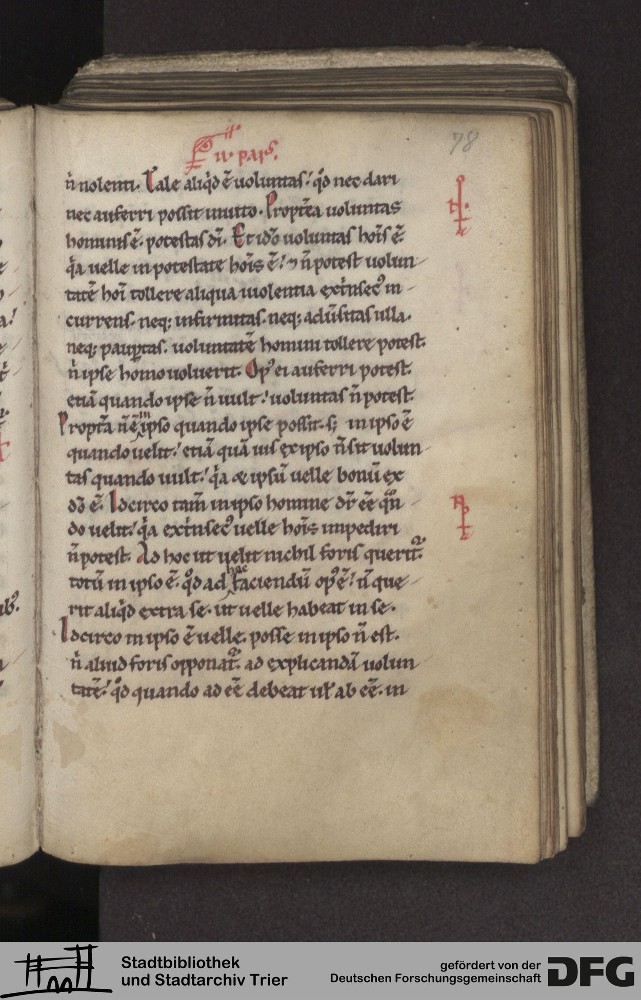 .ii. pars.
78
n̄ nolenti. Tale aliq̇d ē uoluntas! q̇d nec dari
nec auferri possit inuito. Propt̄ea uoluntas
hominis ē. potestas dī. Et idō uoluntas hoīs ē.
q̇a uelle in potestate hoīs ē! ⁊ n̄ potest uolun-
tatē hoī tollere aliqua uiolentia ext̄nsec᷒ in-
currens. neq; infirmitas. neq; adūsitas ulla.
neq; paup̄tas. uoluntatē homini tollere potest.
n̄ ipse homo uoluerit. Op᷒ ei auferri potest.
etiā quando ipse n̄ uult! uoluntas n̄ potest.
Propt̄ea n̄ ē in ipso quando ipse possit. s; in ipso ē
quando uelit! etiā quā uis ex ipso n̄ sit uolun-
tas quando uult! q̇a ⁊ ipsū uelle bonū ex
dō ē. Idcirco tam̄ in ipso homine dr̄ eē qn̄-
do uelit! q̇a ext̄nsec᷒ uelle hoīs impediri
n̄ potest. Ad hoc ut uelit nichil foris querit᷑.
totū in ipso ē. q̇d ad hoc faciendū op᷒ ē! n̄ que-
rit aliq̇d extra se. ut uelle habeat in se.
Idcirco in ipso ē uelle. posse in ipso n̄ est.
n̄ aliud foris opponat᷑. ad explicandā uolun-
tatē! q̇d quando ad eē debeat ul̄ ab eē. in
Stadtbibliothek
und Stadtarchiv Trier
gefördert von der
Deutschen Forschungsgemeinschaft
DFG